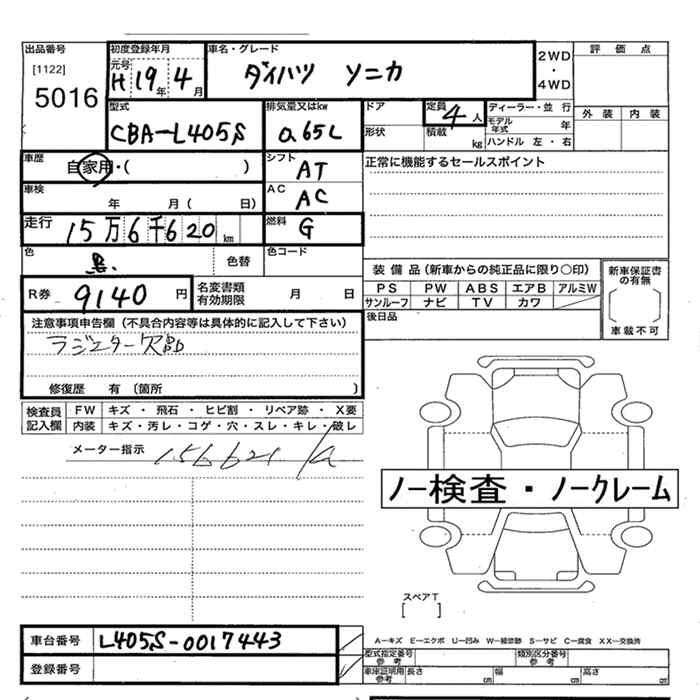 出品番号
[1122]
5016
初度登録年月
元号 H 19年 4月
車名・グレード
ダイハツ ソニカ
2WD
・
4WD
評価点
外装 内装
型式
CBA-L405S
排気量又はkw
0.65L
ドア
形状
定員
4人
積載 kg
ディーラー・並行
モデル年式 年
ハンドル 左・右
車歴
自家用・( )
シフト
AT
正常に機能するセールスポイント
車検
年 月( 日)
AC
AC
走行
15万6千620km
燃料
G
色
黒
色替
色コード
R券 9140円
名変書類
有効期限
月 日
装備品(新車からの純正品に限り○印)
PS PW ABS エアB アルミW
サンルーフ ナビ TV カワ
後日品
新車保証書
の有無
車載不可
注意事項申告欄(不具合内容等は具体的に記入して下さい)
ラジエター欠品
修復歴 有〔箇所 〕
検査員
記入欄
FW キズ・飛石・ヒビ割・リペア跡・X要
内装 キズ・汚レ・コゲ・穴・スレ・キレ・破レ
メーター指示
156621
ノー検査・ノークレーム
スペアT
[ ]
車台番号
L405S-0017443
登録番号
A－キズ E－エクボ U－凹み W－補修跡 S－サビ C－腐食 XX－交換済
型式指定番号
参考
類別区分番号
参考
車庫証明用
参考
長さ cm
幅 cm
高さ cm